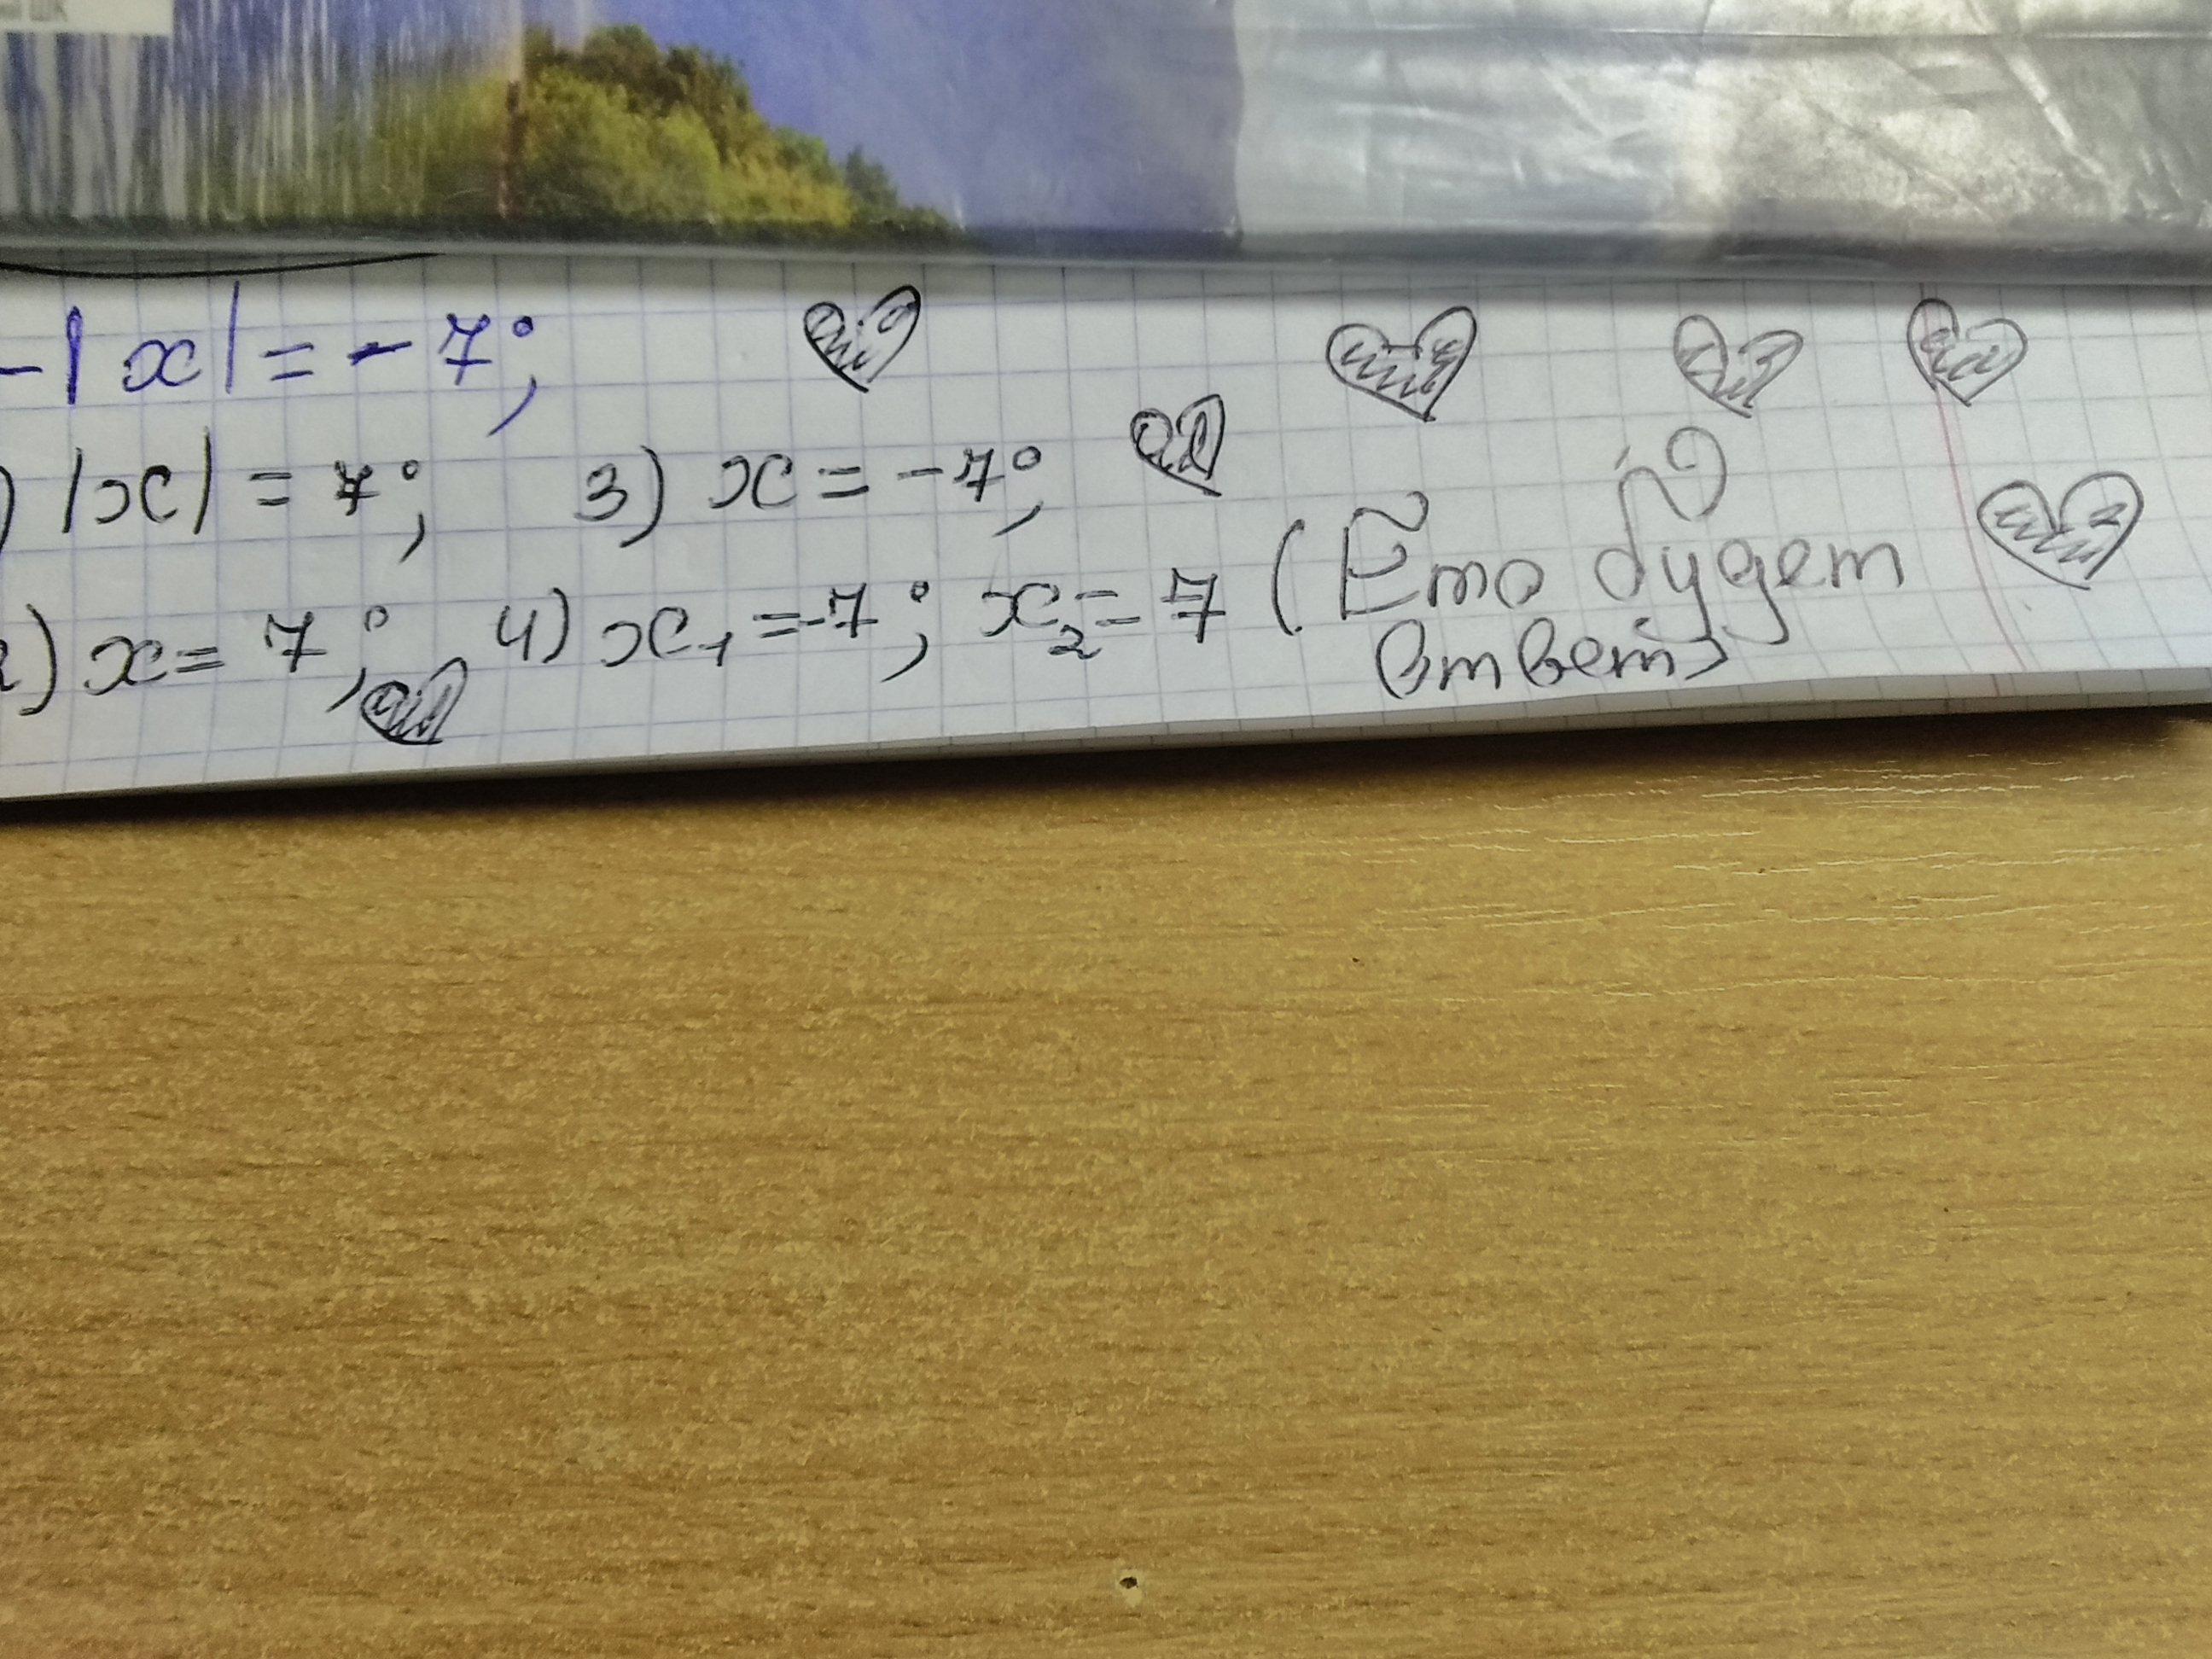 -|x| = -7;
) |x| = 7; 3) x = -7;
2) x = 7; 4) x₁ = -7; x₂ = 7 (Ето будет
ответ)